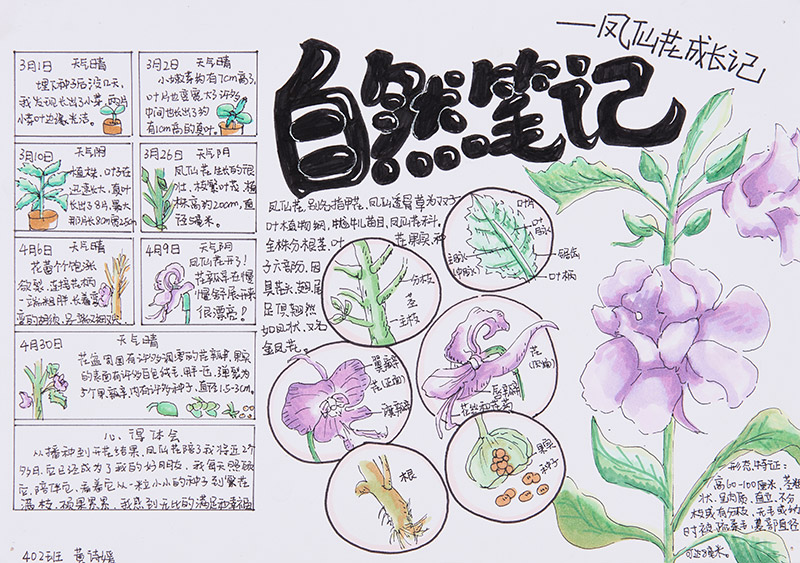 —凤仙花成长记
自然笔记
3月1日 天气晴
埋下种子后没几天,
我发现长出了小芽,两片
小芽叶边缘光洁。
3月2日 天气晴
小嫩芽约有7cm高了,
叶片也变宽大了许多
中间也长出了约
有1cm高的真叶。
3月10日 天气阴
植株、叶子在
迅速长大,真叶
3月26日 天气阴
凤仙花生长的很
壮,枝繁叶茂,植
株高约20cm,直
径5毫米。
4月6日 天气晴
花蕾个个饱涨
欲裂,连接花柄
一端粗胖,长着弯
4月9日 天气阴
凤仙花开了!
花瓣是在慢
慢舒展开来
很漂亮!
4月30日 天气晴
的表面有许多白色绒毛,
直径1.5-3cm。
心得体会
从播种到开花结果,凤仙花陪了我将近2个
多月,它已经成为了我的好朋友,我每天照顾
它,陪伴它,看着它从一粒小小的种子到繁花
满枝,硕果累累,我感到无比的满足和幸福
402班 黄诗媛
凤仙花,别名指甲花、凤仙透骨草为双子
叶植物纲,牻牛儿苗目,凤仙花科。
全株分根、茎、叶、花、果实、种
子六部分,因
其花头、翅、尾、
足俱翘然
如凤状,又名
金凤花。
叶片
叶脉
主脉
锯齿
叶柄
分枝
茎
主枝
翼瓣
花(正面)
旗瓣
花(侧面)
唇瓣
花丝和花药
根
果实
种子
形态特征:
高60-100厘米,茎粗
状,肉质,直立,不分
枝或有分枝,无毛或幼
时被疏柔毛,基部直径
可达8毫米。